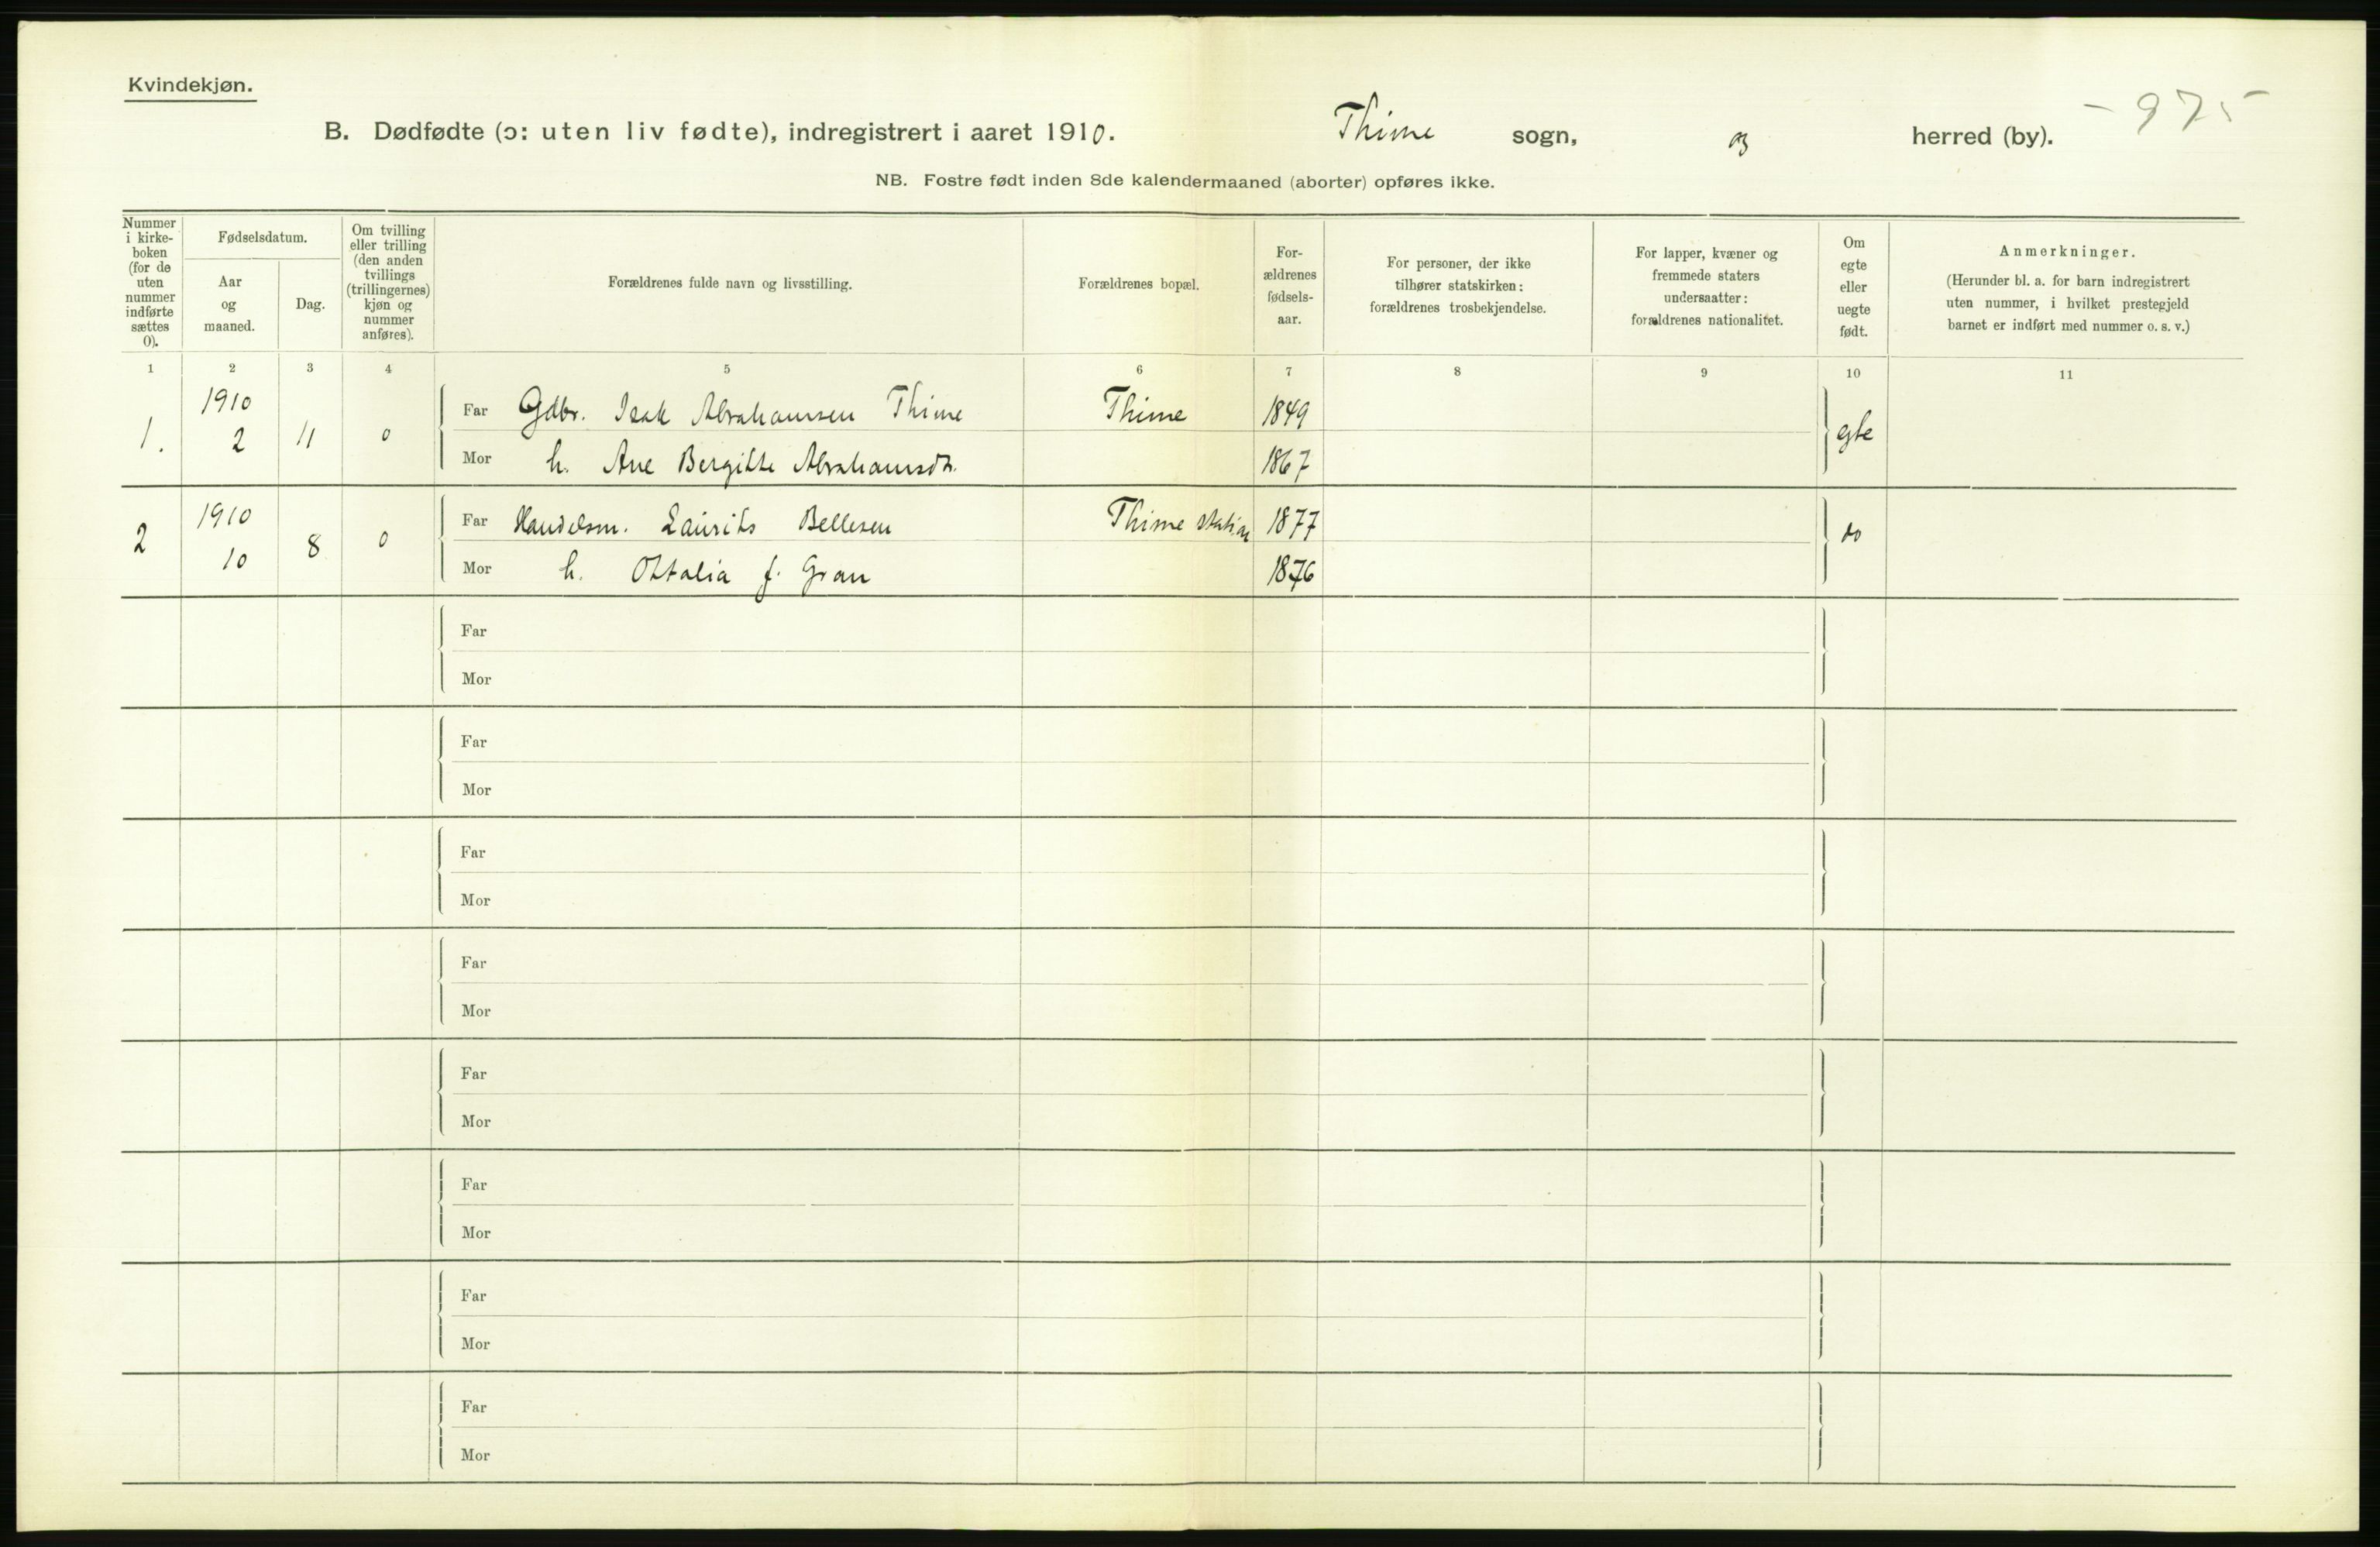 Kvindekjøn.
- 975
B. Dødfødte (ɔ: uten liv fødte), indregistrert i aaret 1910. Thime sogn, og herred (by).
NB. Fostre født inden 8de kalendermaaned (aborter) opføres ikke.
Nummer i kirke-boken (for de uten nummer indførte sættes 0).
Fødselsdatum.
Aar og maaned.
Dag.
Om tvilling eller trilling (den anden tvillings (trillingernes) kjøn og nummer anføres).
Forældrenes fulde navn og livsstilling.
Forældrenes bopæl.
For-ældrenes fødsels-aar.
For personer, der ikke tilhører statskirken: forældrenes trosbekjendelse.
For lapper, kvæner og fremmede staters undersaatter: forældrenes nationalitet.
Om egte eller uegte født.
Anmerkninger.
(Herunder bl. a. for barn indregistrert uten nummer, i hvilket prestegjeld barnet er indført med nummer o. s. v.)
1 2 3 4 5 6 7 8 9 10 11
1. 1910 2 11 0 Far Gdbr. Isak Abrahamsen Thime Thime 1849 egte
Mor h. Ane Bergitte Abrahamsdt. 1867
2 1910 10 8 0 Far Handelsm. Laurits Bellesen Thime station 1877 do
Mor h. Ottalia f. Gran 1876
Far
Mor
Far
Mor
Far
Mor
Far
Mor
Far
Mor
Far
Mor
Far
Mor
Far
Mor